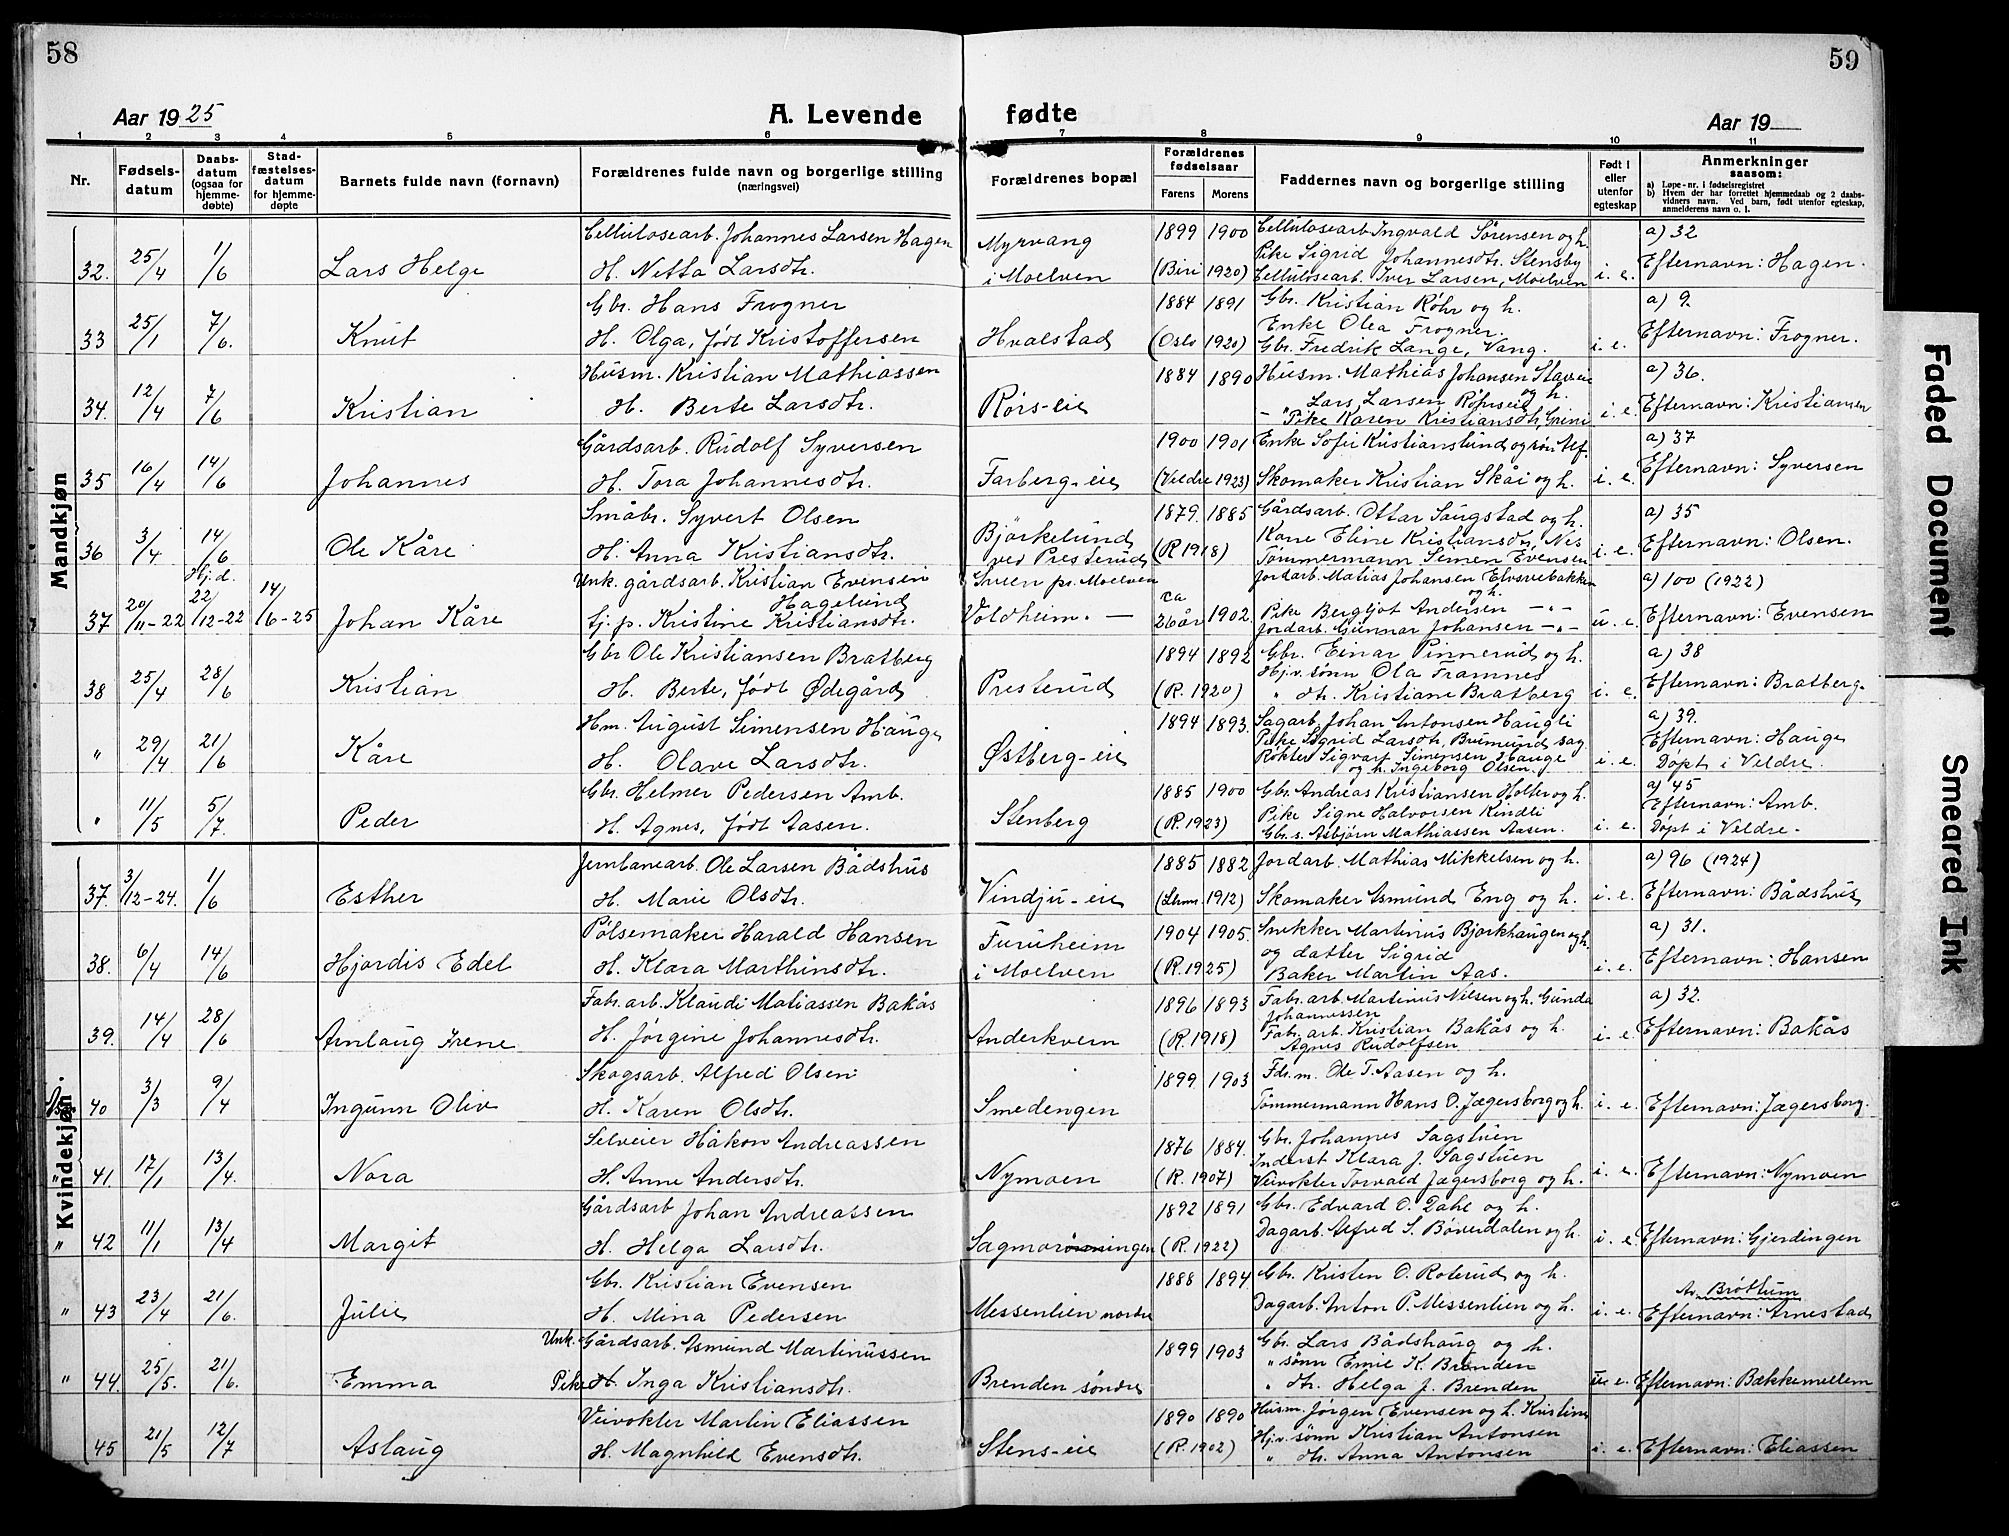 58
59
Aar 1925
A. Levende
fødte
Aar 19
1 2 3 4 5 6 7 8 9 10 11
Nr.
Fødselsdatum
Daabsdatum (ogsaa for hjemmedøbte)
Stadfæstelsesdatum for hjemmedøpte
Barnets fulde navn (fornavn)
Forældrenes fulde navn og borgerlige stilling
(næringsvei)
Forældrenes bopæl
Forældrenes fødselsaar
Farens Morens
Faddernes navn og borgerlige stilling
Født i eller utenfor egteskap
Anmerkninger
saasom:
a) Løpe-nr. i fødselsregistret
b) Hvem der har forrettet hjemmedaab og 2 daabsvidners navn. Ved barn, født utenfor egteskap, anmelderens navn o. l.
Mandkjøn
Cellulosearb. Johannes Larsen Hagen Myrvang 1899 1900 Cellulosearb Ingvald Sørensen og h. a) 32
Pike Sigrid Johannesdtr. Stensby
32. 25/4 1/6 Lars Helge H. Netta Larsdtr. i Moelven (Biri 1920) Cellulosearb. Iver Larsen, Moelven i. e. Efternavn: Hagen.
Gbr. Hans Frogner 1884 1891 Gbr. Kristian Røhr og h. a) 9.
Enke Olea Frogner.
33 25/1 7/6. Knut H. Olga, født Kristoffersen Hvalstad (Oslo 1920) Gbr. Fredrik Lange, Vang. i. e. Efternavn: Frogner.
Husm. Kristian Mathiassen 1884 1890 Husm. Mathias Johansen Slaveie og h. a) 36.
" Lars Larsen Røhrseie
34. 12/4 7/6 Kristian H. Berte Larsdtr. Rørs-eie Pike Karen Kristiansdtr, Greini i. e. Efternavn: Kristiansen
Gårdsarb. Rudolf Syversen 1900 1901 Enke Sofie Kristianslund og søn Alf. a) 37
35 16/4 14/6 Johannes H. Tora Johannesdtr. Farberg-eie (Veldre 1923) Skomaker Kristian Skåi og h. i. e. Efternavn: Syversen
Småbr. Syvert Olsen Bjørkelund 1879. 1885 Gårdsarb. Ottar Saugstad og h. a) 35
Kone Eline Kristiansdtr. Nis
36 3/4 14/6 Ole Kåre H. Anna Kristiansdtr. ved Presterud (R 1918) Tømmermann Simen Evensen i. e. Efternavn: Olsen.
Hj.d. Unk. gårdsarb. Kristian Evensen Hagelund Sveen pr. Moelven Jordarb. Matias Johansen Elvsvebakken og h. a) 100 (1922)
37 20/11-22 22/12-22 14/6-25 Johan Kåre tj. p. Kristine Kristiansdtr. Voldheim. — ca 26 år 1902. Pike Bergljot Andersen — " — u. e. Efternavn: Evensen
Jordarb. Gunnar Johansen — " —
Gbr Ole Kristiansen Bratberg 1894 1892 Gbr. Einar Pinnerud og h. a) 38
Hj.v. sønn Ola Framnes
38 25/4 28/6 Kristian H. Berte, født Ødegård Presterud (R. 1920) " dtr. Kristiane Bratberg i. e. Efternavn: Bratberg.
Hm. August Simensen Hauge 1894 1893. Sagarb. Johan Antonsen Haugli a) 39.
Pike Sigrid Larsdtr, Brumund sag Efternavn: Hauge
" 29/4 21/6 Kåre H. Olave Larsdtr. Østberg-eie Røkter Sigvart Simensen Hauge og h. Ingeborg Olsen. i. e. Døpt i Veldre.
Gbr. Helmer Pedersen Amb. 1885 1900 Gbr. Andreas Kristiansen Holter og h. a) 45
Pike Signe Halvorsen Kindli Efternavn: Amb.
" 11/5 5/7. Peder H. Agnes, født Aasen. Stenberg (R. 1923) Gbr. s. Asbjørn Mathiassen Aasen. i. e. Døpt i Veldre.
Kvindekjøn
Jernbanearb. Ole Larsen Bådshus 1885 1882 Jordarb. Mathias Mikkelsen og h. a) 96 (1924)
37. 3/12-24. 1/6 Esther H. Marie Olsdtr. Vindju-eie 1912) Skomaker Asmund Eng og h. i. e. Efternavn: Bådshus
Pølsemaker Harald Hansen Furuheim 1904 1905. Snekker Martinus Bjørkhaugen og h. a) 31.
og datter Sigrid
38. 6/4 14/6 Hjørdis Edel H. Klara Marthinsdtr. i Moelven (R. 1925) Baker Martin Aas. i. e. Efternavn: Hansen
Fabr. arb. Klaudi Matiassen Bakås 1896 1893 Fabr. arb. Martinus Nilsen og h. Gunda Johannessen a) 32.
39. 14/4 28/6 Arnlaug Irene H. Jørgine Johannesdtr. Anderkvern (R. 1918) Fabr. arb. Kristian Bakås og h. Agnes Rudolfsen i. e. Efternavn: Bakås
Skogsarb. Alfred Olsen 1899 1903 Fdr.m. Ole T. Aasen og h.
40 3/3 9/4 Ingunn Oliv H. Karen Olsdtr. Smedengen Tømmermann Hans O. Jægersborg og h. i. e. Efternavn: Jægersborg.
Selveier Håkon Andreassen 1876 1884. Gbr. Johannes Sagstuen
Inderst Klara J. Sagstuen
" 41. 17/1 13/4. Nora H. Anne Andersdtr. Nymoen (R. 1907) Veivokter Torvald Jægersborg og h. i. e. Efternavn: Nymoen
Gårdsarb Johan Andreassen 1892 1891 Gbr. Edvard O. Dahl og h.
" 42 11/1 13/4 Margit H. Helga Larsdtr. Sagmorønningen (R. 1922) Dagarb. Alfred S. Böverdalen og h. i. e. Efternavn: Gjerdingen
Gbr. Kristian Evensen 1888 1894 Gbr. Kristen O. Roterud og h. Av. Brøttum
" 43 23/4 21/6. Julie H. Mina Pedersen Messenlien nordre Dagarb. Anton P. Messenlien og h. i. e. Efternavn: Arnestad
Unk. Gårdsarb. Asmund Martinussen 1899 1903 Gbr. Lars Bådshaug og h.
" sønn Emil K. Brenden
" 44. 25/5. 21/6. Emma Pike H. Inga Kristiansdtr. Brenden søndre " dtr. Helga J. Brenden u. e. Efternavn: Bækkemellem
Veivokter Martin Eliassen 1890 1890 Husm. Jørgen Evensen og h. Kristine
Hj.v. sønn Kristian Antonsen
45 21/5 12/7 Aslaug H. Magnhild Evensdtr. Stens-eie (R. 1902) " dtr. Anna Antonsen i. e. Efternavn: Eliassen
Faded Document
Smeared Ink